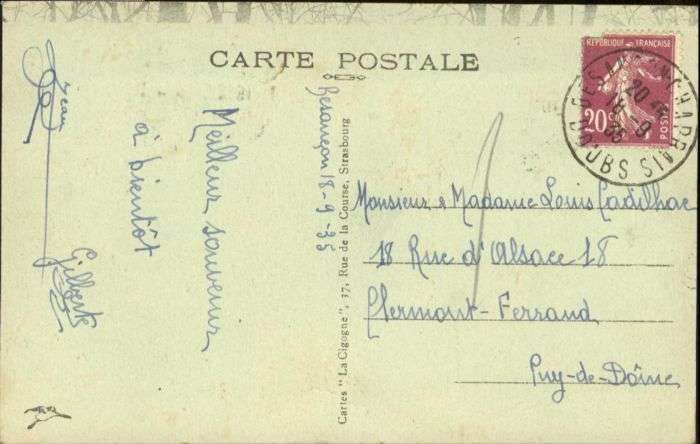 CARTE POSTALE
Besançon 18-9-35
Meilleur souvenir
à bientôt
Jean
Gilberte
Cartes "La Cigogne", 37, Rue de la Course, Strasbourg
REPUBLIQUE FRANÇAISE
20c
POSTES
BESANCON-CHAPRAIS
20
18-9
35
DOUBS
Monsieur & Madame Louis Cadilhac
18 Rue d'Alsace 18
Clermont-Ferrand
Puy-de-Dôme